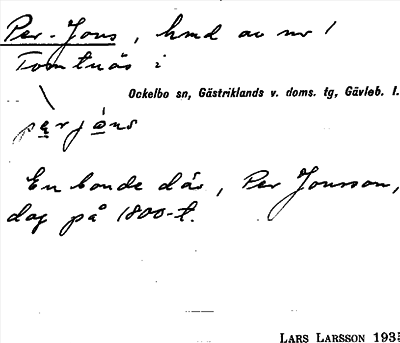 Per-Jons, hmd av nr 1
Tomtnäs i
Ockelbo sn, Gästriklands v. doms. tg, Gävleb. l.
perjóns
En bonde där, Per Jonsson,
dog på 1800-t.
LARS LARSSON 1935